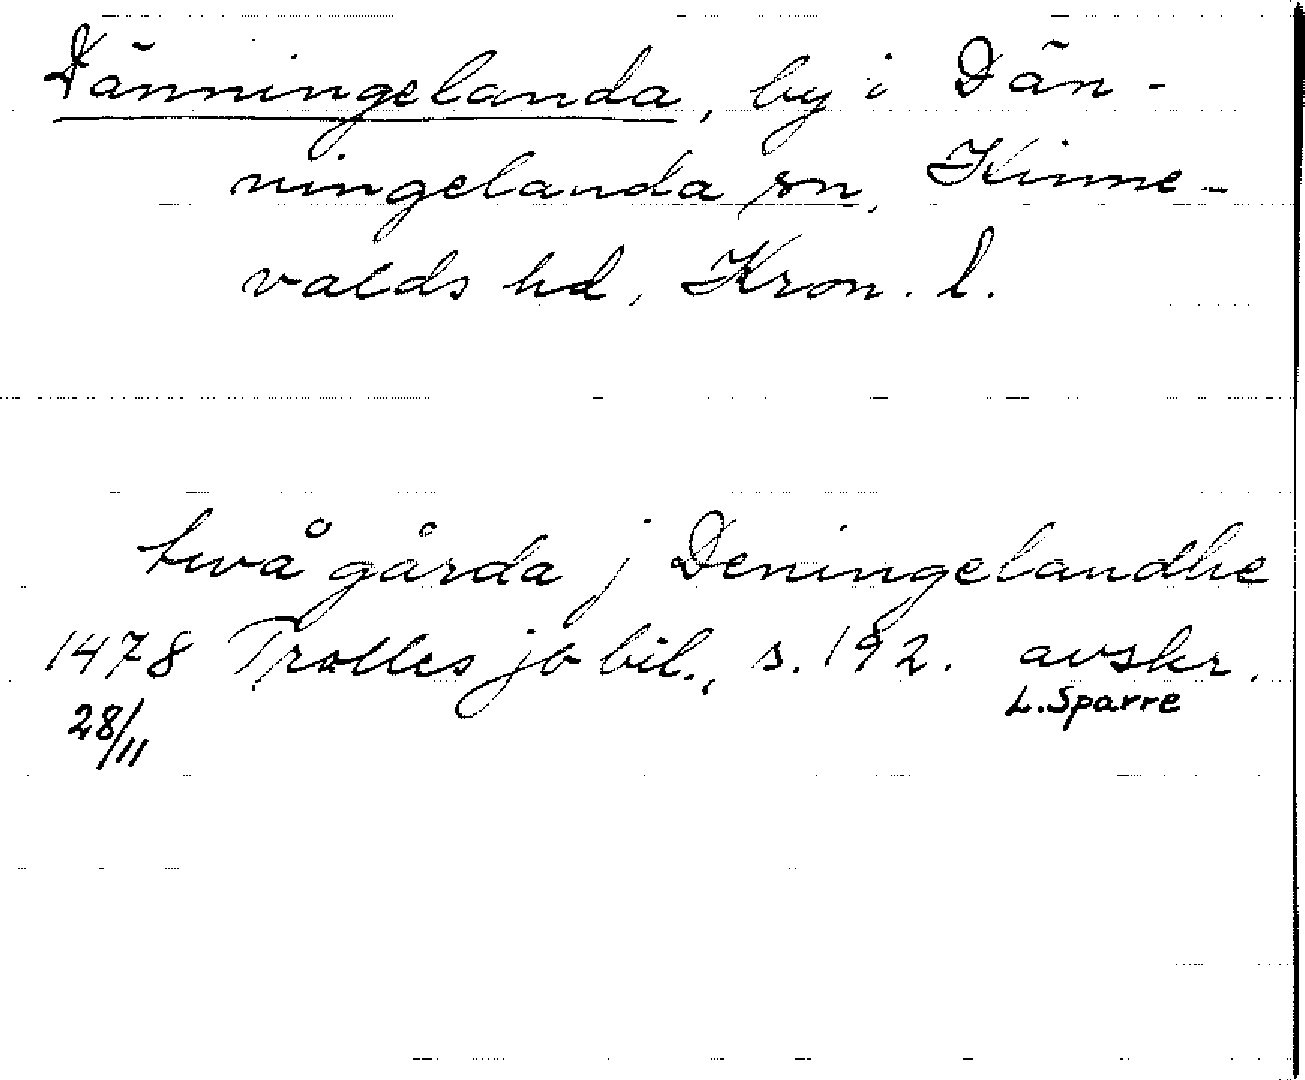 Dänningelanda, by i Dän-
ningelanda sn, Kinne-
valds hd, Kron. l.
twå gårda j Deningelandhe
1478 Trolles jb bil., s. 192. avskr.
28/11 L. Sparre